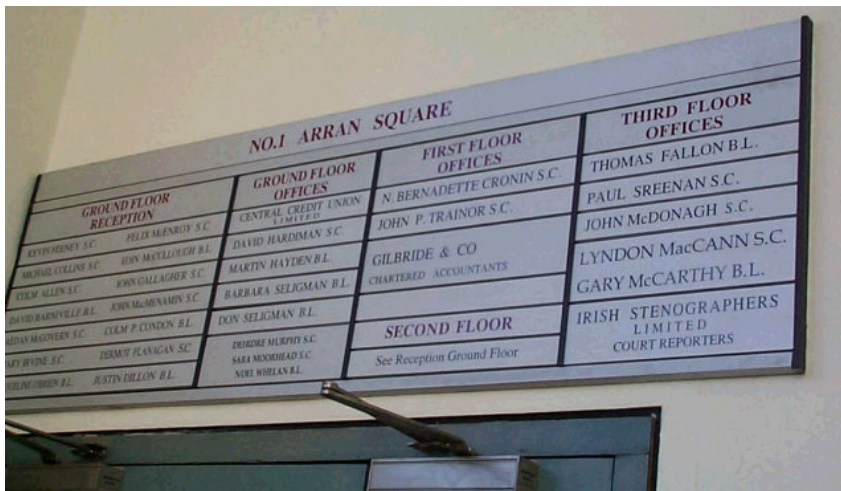 NO.1 ARRAN SQUARE
GROUND FLOOR
RECEPTION
KEVIN FEENEY S.C. FELIX McENROY S.C.
MICHAEL COLLINS S.C. EOIN McCULLOUGH B.L.
COLM ALLEN S.C. JOHN GALLAGHER S.C.
DAVID BARNIVILLE B.L. JOHN MacMENAMIN S.C.
McGOVERN S.C. COLM P. CONDON B.L.
IRVINE S.C. DERMOT FLANAGAN S.C.
O'BRIEN B.L. JUSTIN DILLON B.L.
GROUND FLOOR
OFFICES
CENTRAL CREDIT UNION
LIMITED
DAVID HARDIMAN S.C.
MARTIN HAYDEN B.L.
BARBARA SELIGMAN B.L.
DON SELIGMAN B.L.
DEIRDRE MURPHY S.C.
SARA MOORHEAD S.C.
NOEL WHELAN B.L.
FIRST FLOOR
OFFICES
N. BERNADETTE CRONIN S.C.
JOHN P. TRAINOR S.C.
GILBRIDE & CO
CHARTERED ACCOUNTANTS
SECOND FLOOR
See Reception Ground Floor
THIRD FLOOR
OFFICES
THOMAS FALLON B.L.
PAUL SREENAN S.C.
JOHN McDONAGH S.C.
LYNDON MacCANN S.C.
GARY McCARTHY B.L.
IRISH STENOGRAPHERS
LIMITED
COURT REPORTERS